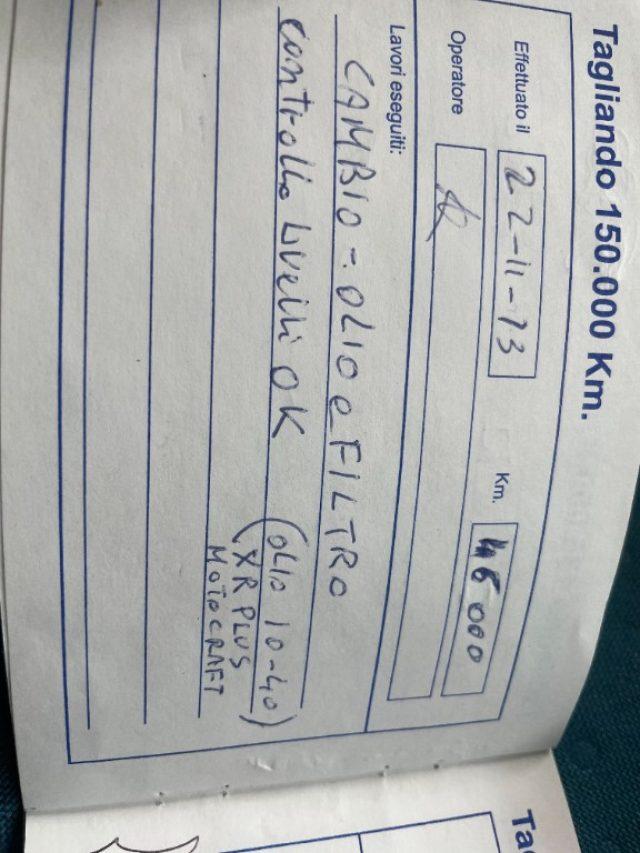 Tagliando 150.000 Km.
Effettuato il 22-11-13 Km. 146 000
Operatore
Lavori eseguiti:
CAMBIO - OLIO e FILTRO
controllo livelli OK (OLIO 10-40)
(XR PLUS
MOTOCRAFT
Ta